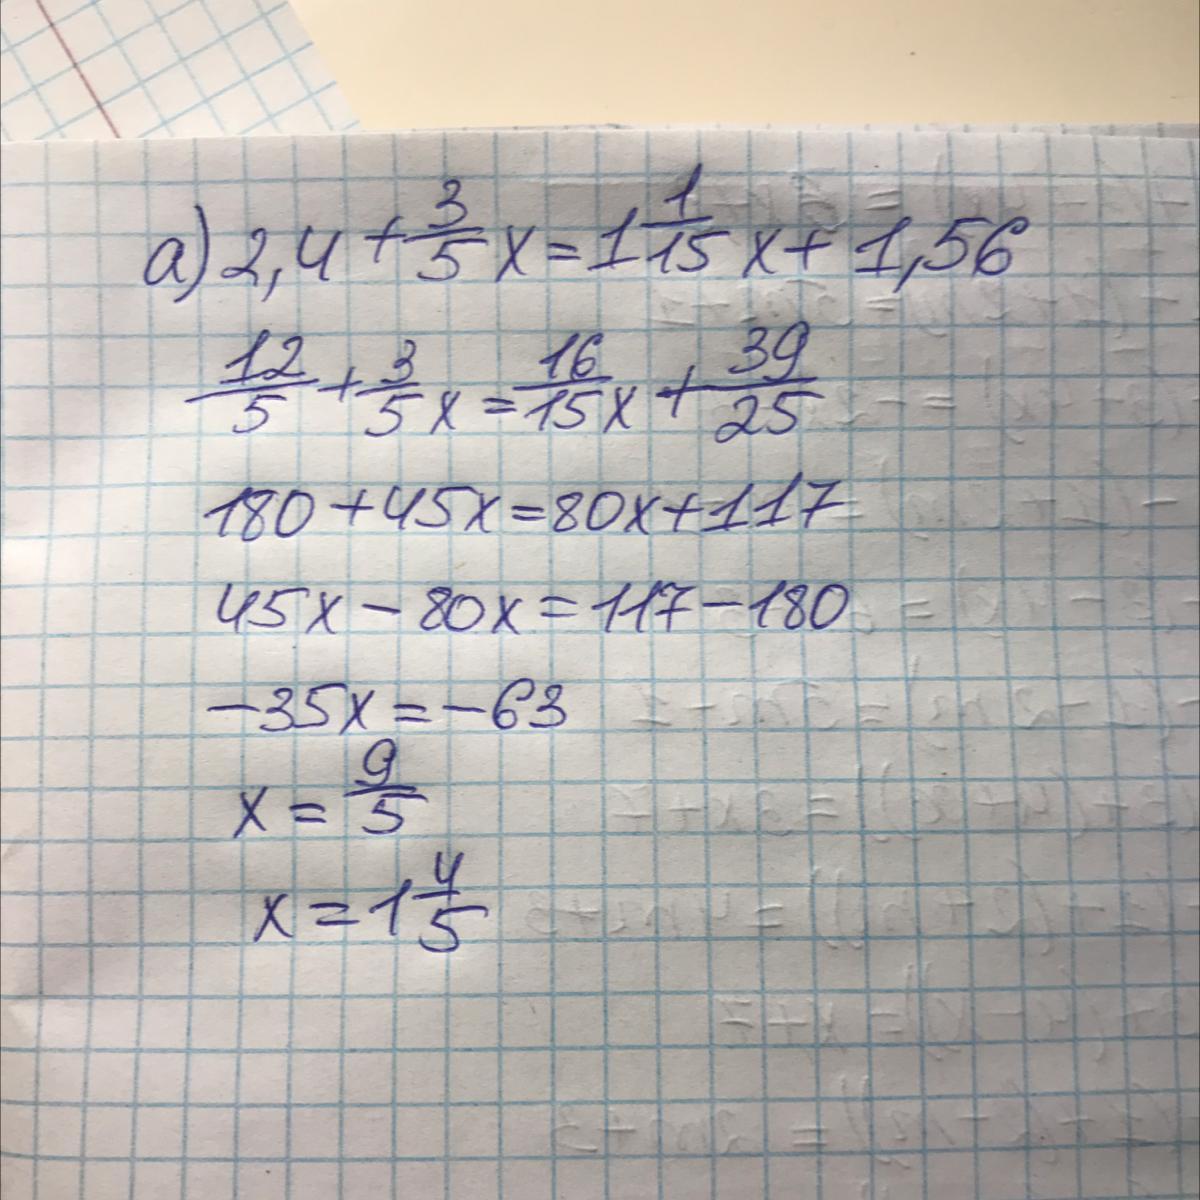 а) 2,4 + 3/5 x = 1 1/15 x + 1,56
12/5 + 3/5 x = 16/15 x + 39/25
180 + 45x = 80x + 117
45x - 80x = 117 - 180
-35x = -63
x = 9/5
x = 1 4/5